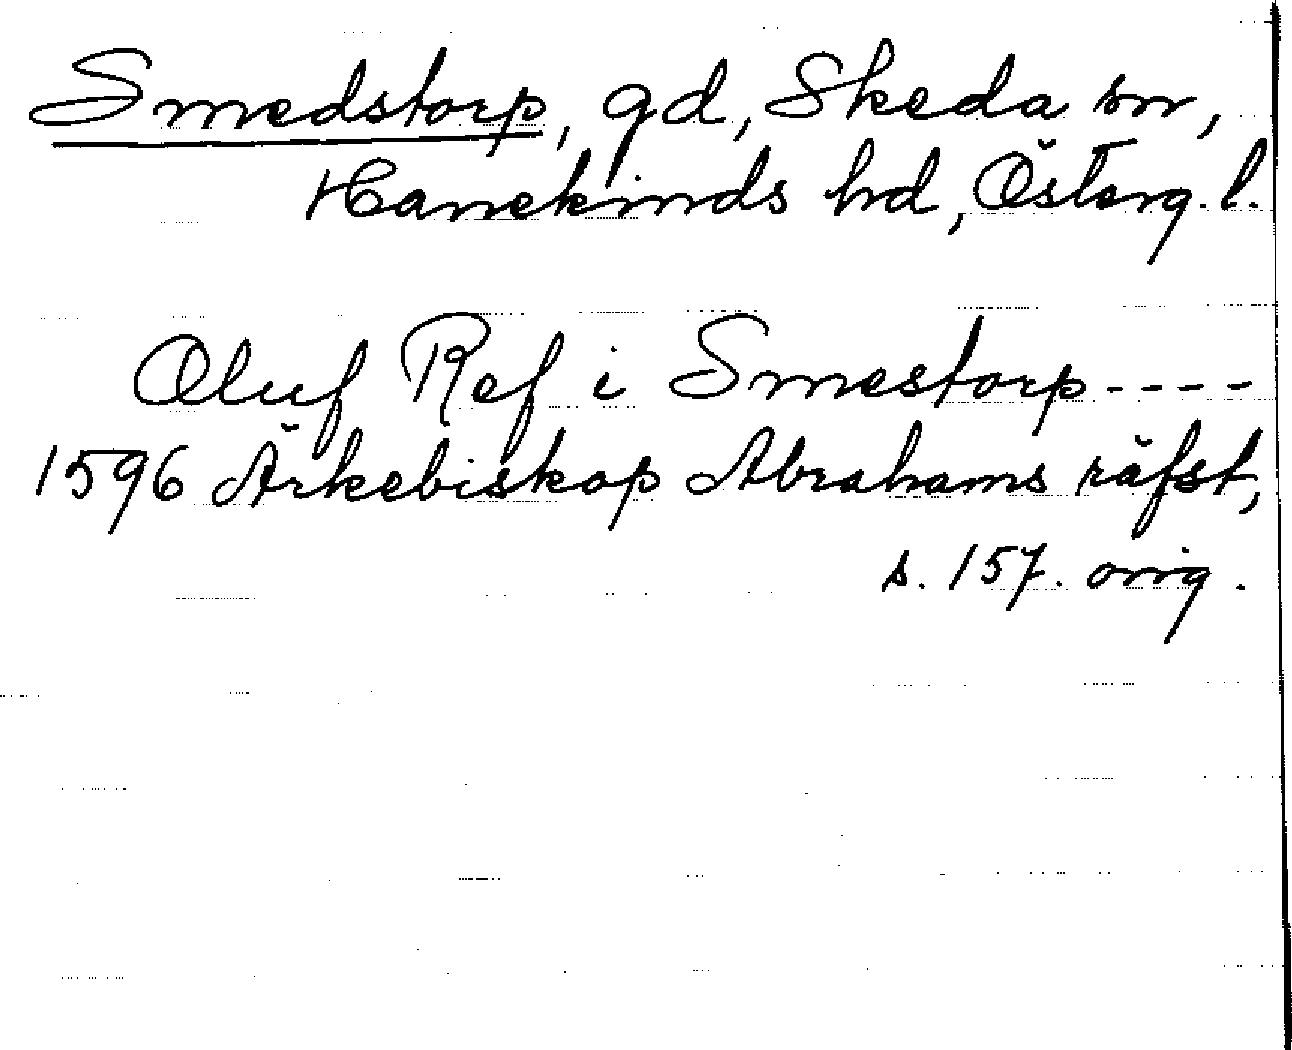 Smedstorp, gd, Skeda sn,
Hanekinds hd, Österg. l.
Oluf Ref i Smestorp ----
1596 Ärkebiskop Abrahams räfst,
s. 157. orig.